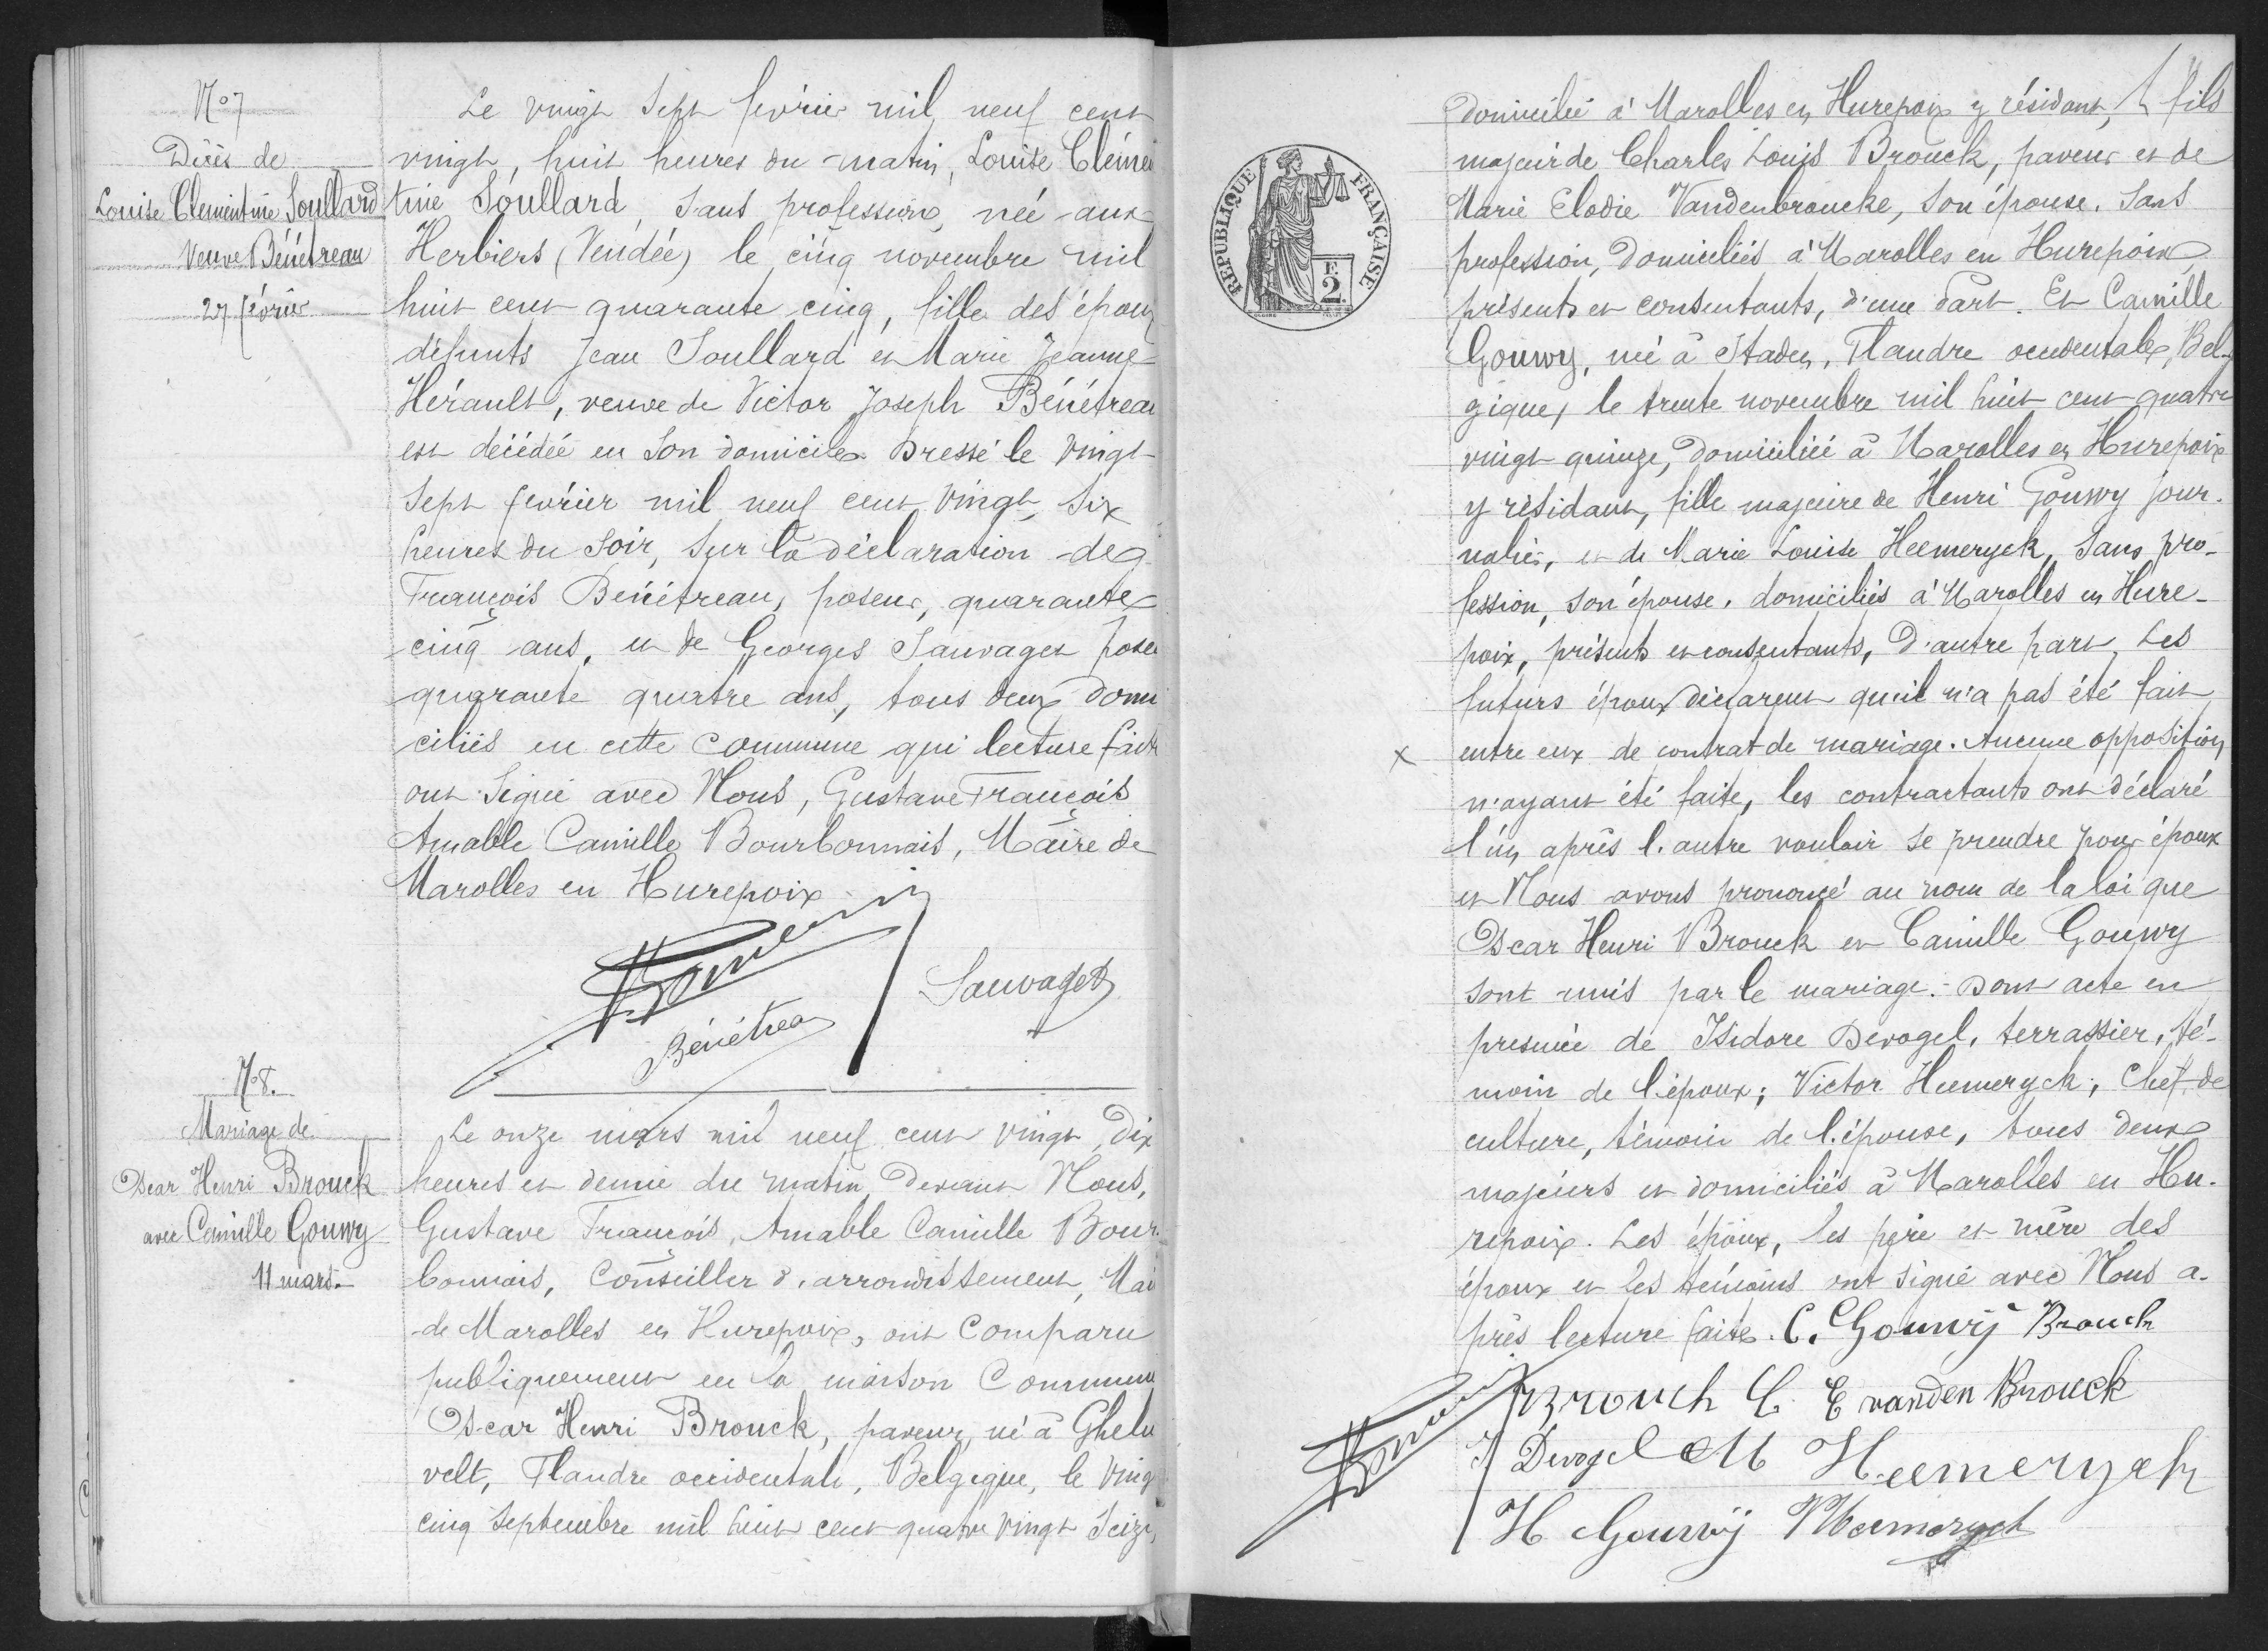 N° 7
Décès de
Louise Clementine Soullard
Veuve Bénétreau
27 février
Le vingt sept février mil neuf cent
vingt, huit heures du matin, Louise Clémen
tine Soullard, sans profession, née aux
Herbiers (Vendée) le cinq novembre mil
huit cent quarante cinq, fille des époux
défunts Jean Soullard et Marie Jeanne
Hérault, veuve de Victor Joseph Bénétreau
est décédée en son domicile. Dressé le vingt
sept février mil neuf cent vingt, six
heures du soir, sur la déclaration de
François Bénétreau, poseur, quarante
cinq ans, et de Georges Sauvaget pose
quarante quatre ans, tous deux domi
ciliés en cette commune qui lecture faite
ont signé avec Nous, Gustave François
Amable Camille Bourbonnais, Maire de
Marolles en Hurepoix
Sauvaget
Bénétreau
N° 8.
Mariage de
Oscar Henri Brouck
avec Camille Gouwy
11 mars.
Le onze mars mil neuf cent vingt, dix
heures et demie du matin, devant Nous,
Gustave François, Amable Camille Bour
bonnais, Conseiller d'arrondissement, Mai
de Marolles en Hurepoix, ont comparu
publiquement en la maison Commune
Oscar Henri Brouck, paveur, né à Ghelu
velt, Flandre occidentale, Belgique, le vingt
cinq septembre mil huit cent quatre vingt seize,
REPUBLIQUE FRANÇAISE
F.
2
domicilié à Marolles en Hurepoix y résidant, fils
majeur de Charles Louis Brouck, paveur et de
Marie Elodie Vandenbroucke, son épouse, sans
profession, domiciliés à Marolles en Hurepoix
présents et consentants, d'une part. Et Camille
Gouwy, née à Staden, Flandre occidentale, Bel-
gique, le trente novembre mil huit cent quatre
vingt quinze, domiciliée à Marolles en Hurepoix
y résidant, fille majeure de Henri Gouwy jour-
nalier, et de Marie Louise Heemeryck, sans pro-
fession, son épouse, domiciliés à Marolles en Hure-
poix, présents et consentants, d'autre part. Les
futurs époux déclarent qu'il n'a pas été fait
x entre eux de contrat de mariage. Aucune opposition
n'ayant été faite, les contractants ont déclaré
l'un après l'autre vouloir se prendre pour époux
et Nous avons prononcé au nom de la loi que
Oscar Henri Brouck et Camille Gouwy
sont unis par le mariage. Dont acte en
présence de Isidore Devogel, terrassier, té-
moin de l'époux; Victor Heemeryck, Chef de
culture, témoin de l'épouse, tous deux
majeurs et domiciliés à Marolles en Hu-
repoix. Les époux, les père et mère des
époux et les témoins ont signé avec Nous a-
près lecture faite. C. Gouwij Brouck
Brouck C. E vanden Brouck
I Devogel M Heemeryck
H Gouwij V Heemeryck